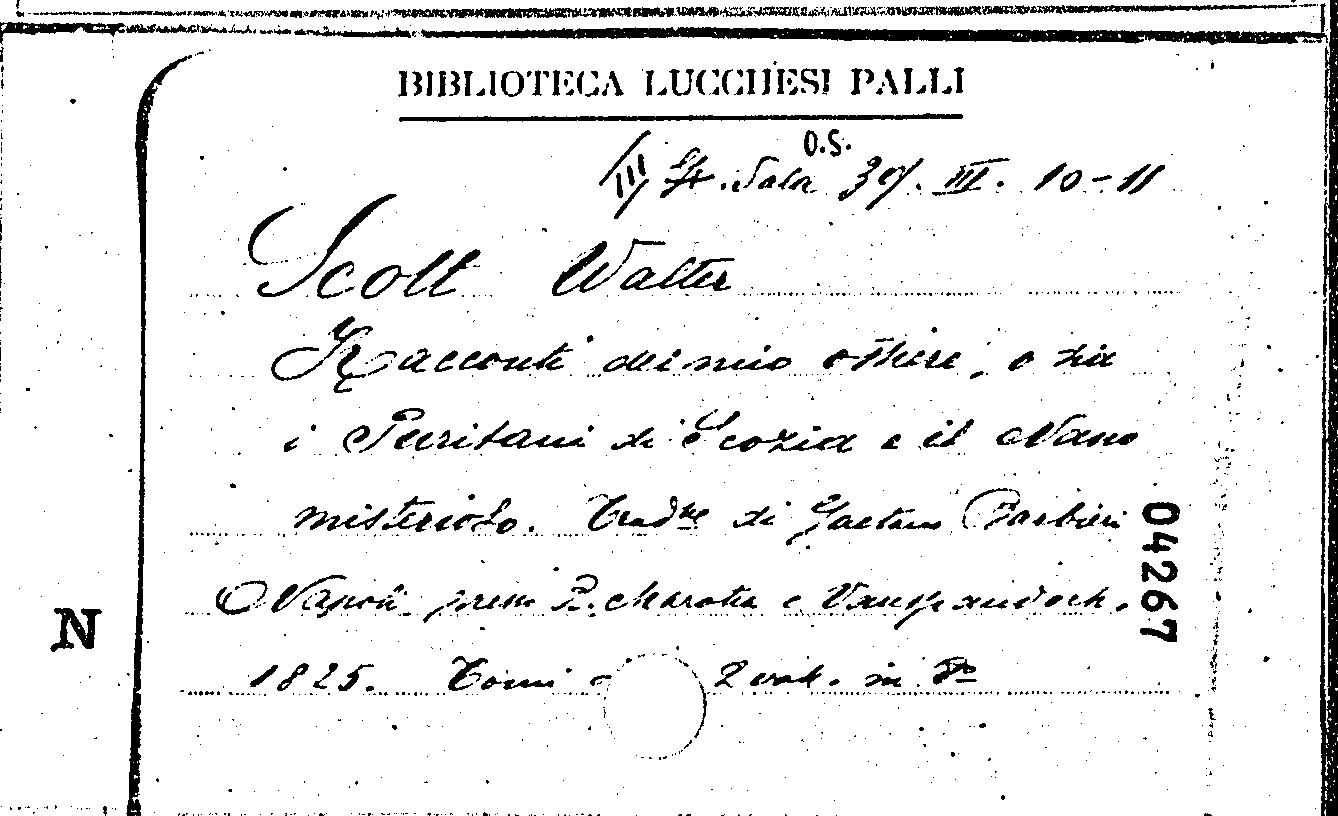 BIBLIOTECA LUCCHESI PALLI
O.S.
III Sala 39. III. 10-11
Scott Walter
Racconti del mio ostiere, o sia
i Puritani di Scozia e il Nano
misterioso. Trad.ne di Gaetano Barbieri
Napoli presso R. Marotta e Vanspandoch.
1825. Tomi 2 vol. in 8º
04267
N